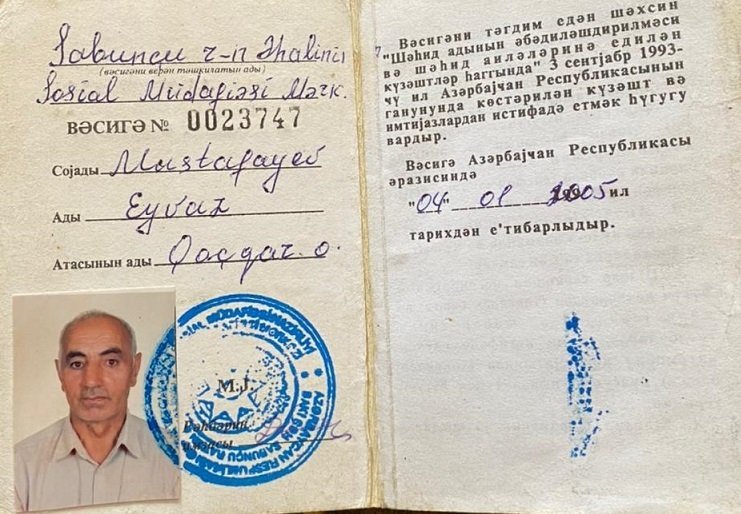 Sabunçu r-n Əhalinin
(вәсигәни верән тәшкилатын ады)
Sosial Müdafiəsi Mərk.
ВӘСИГӘ № 0023747
Сојады Mustafayev
Ады Eyvaz
Атасынын ады Qaçqar o.
М.Ј.
Рәһбәрин
имзасы
Вәсигәни тәгдим едән шәхсин
"Шәһид адынын әбәдиләшдирилмәси
вә шәһид аиләләринә едилән
күзәштләр һаггында" 3 сентјабр 1993-
чү ил Азәрбајҹан Республикасынын
ганунунда көстәрилән күзәшт вә
имтијазлардан истифадә етмәк һүгугу
вардыр.
Вәсигә Азәрбајҹан Республикасы
әразисиндә
"04" 01 2005 ил
тарихдән е'тибарлыдыр.